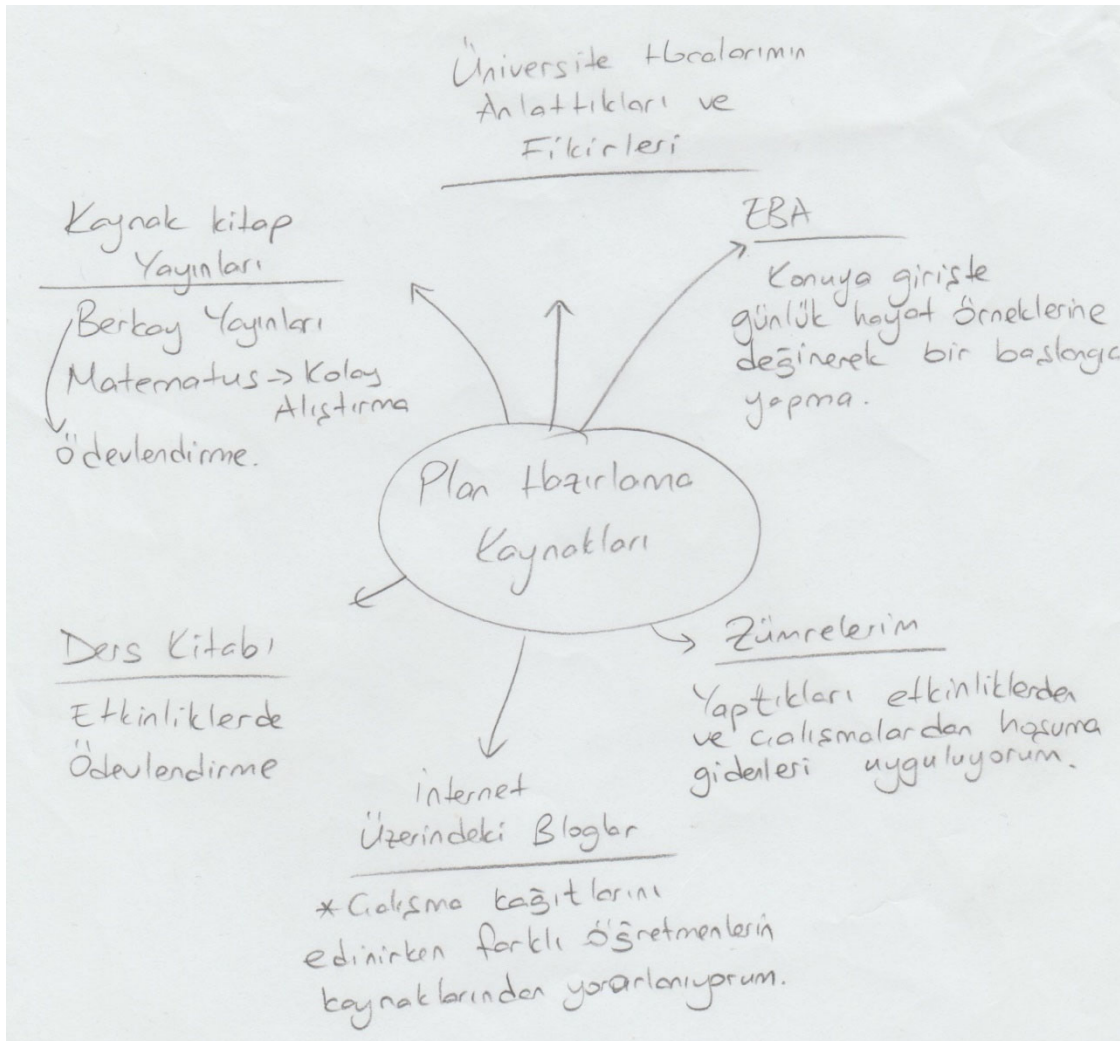 Üniversite Hocalarımın
Anlattıkları ve
Fikirleri
Kaynak kitap
Yayınları
Berkay Yayınları
Matematus → Kolay
Alıştırma
Ödevlendirme.
EBA
Konuya girişte
günlük hayat örneklerine
değinerek bir başlangıç
yapma.
Plan Hazırlama
Kaynakları
Ders Kitabı
Etkinliklerde
Ödevlendirme
Zümrelerim
Yaptıkları etkinliklerden
ve çalışmalardan hoşuma
gidenleri uyguluyorum.
İnternet
Üzerindeki Bloglar
* Çalışma kağıtlarını
edinirken farklı öğretmenlerin
kaynaklarından yararlanıyorum.